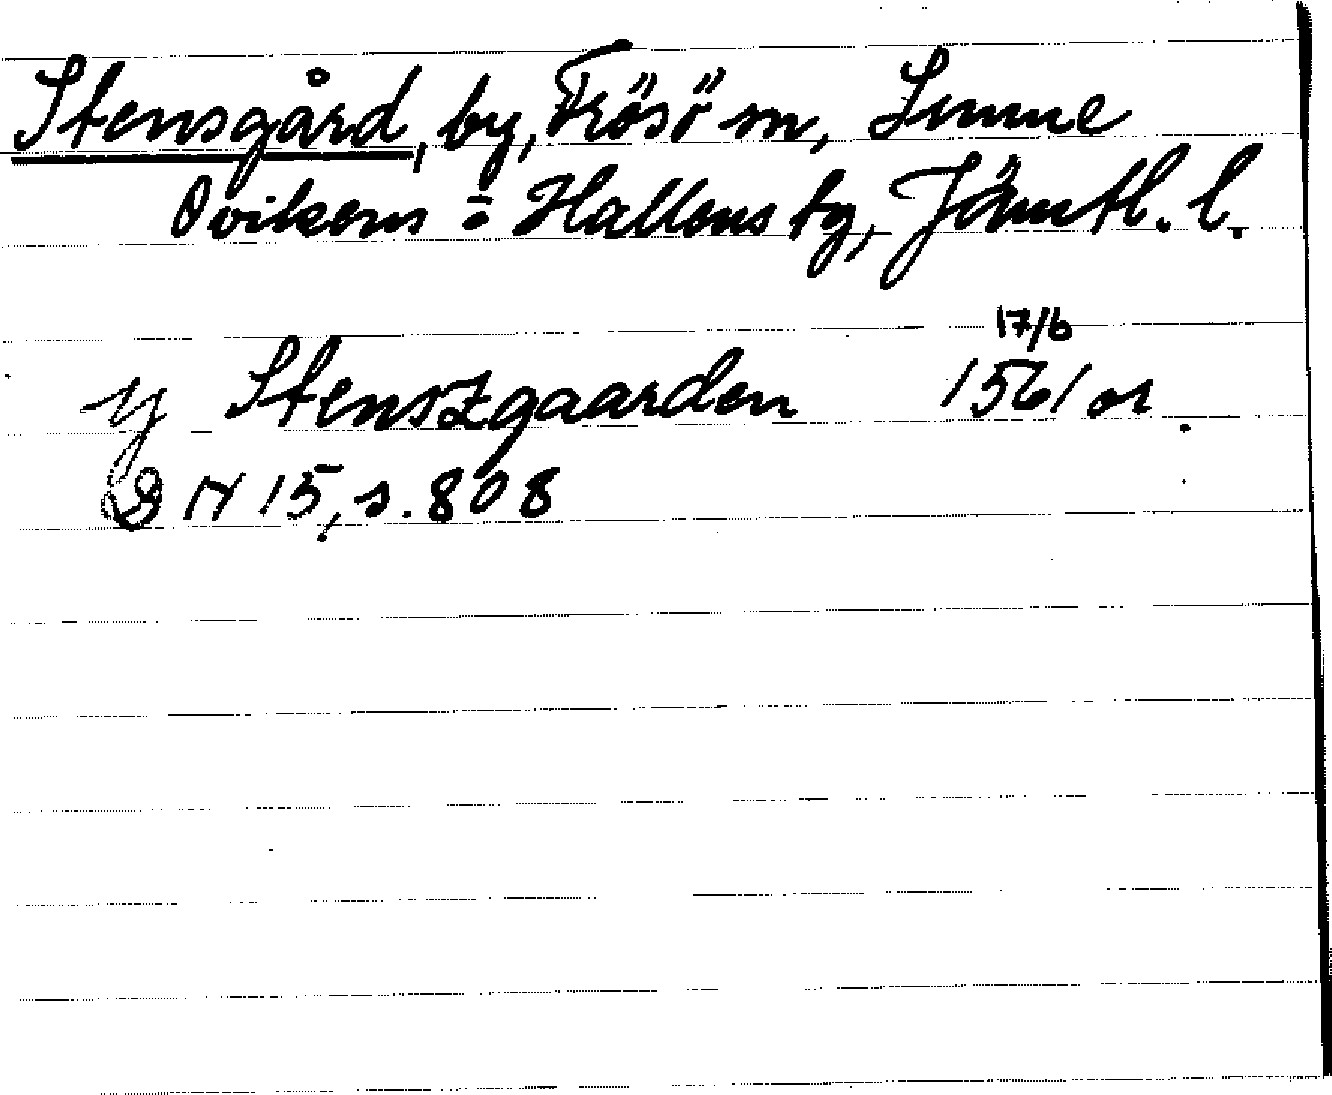 Stensgård, by, Frösö sn, Sunne
Ovikens = Hallens tg, Jämtl. l.
17/6
y Stenszgaarden 1561 or
DN 15, s. 808